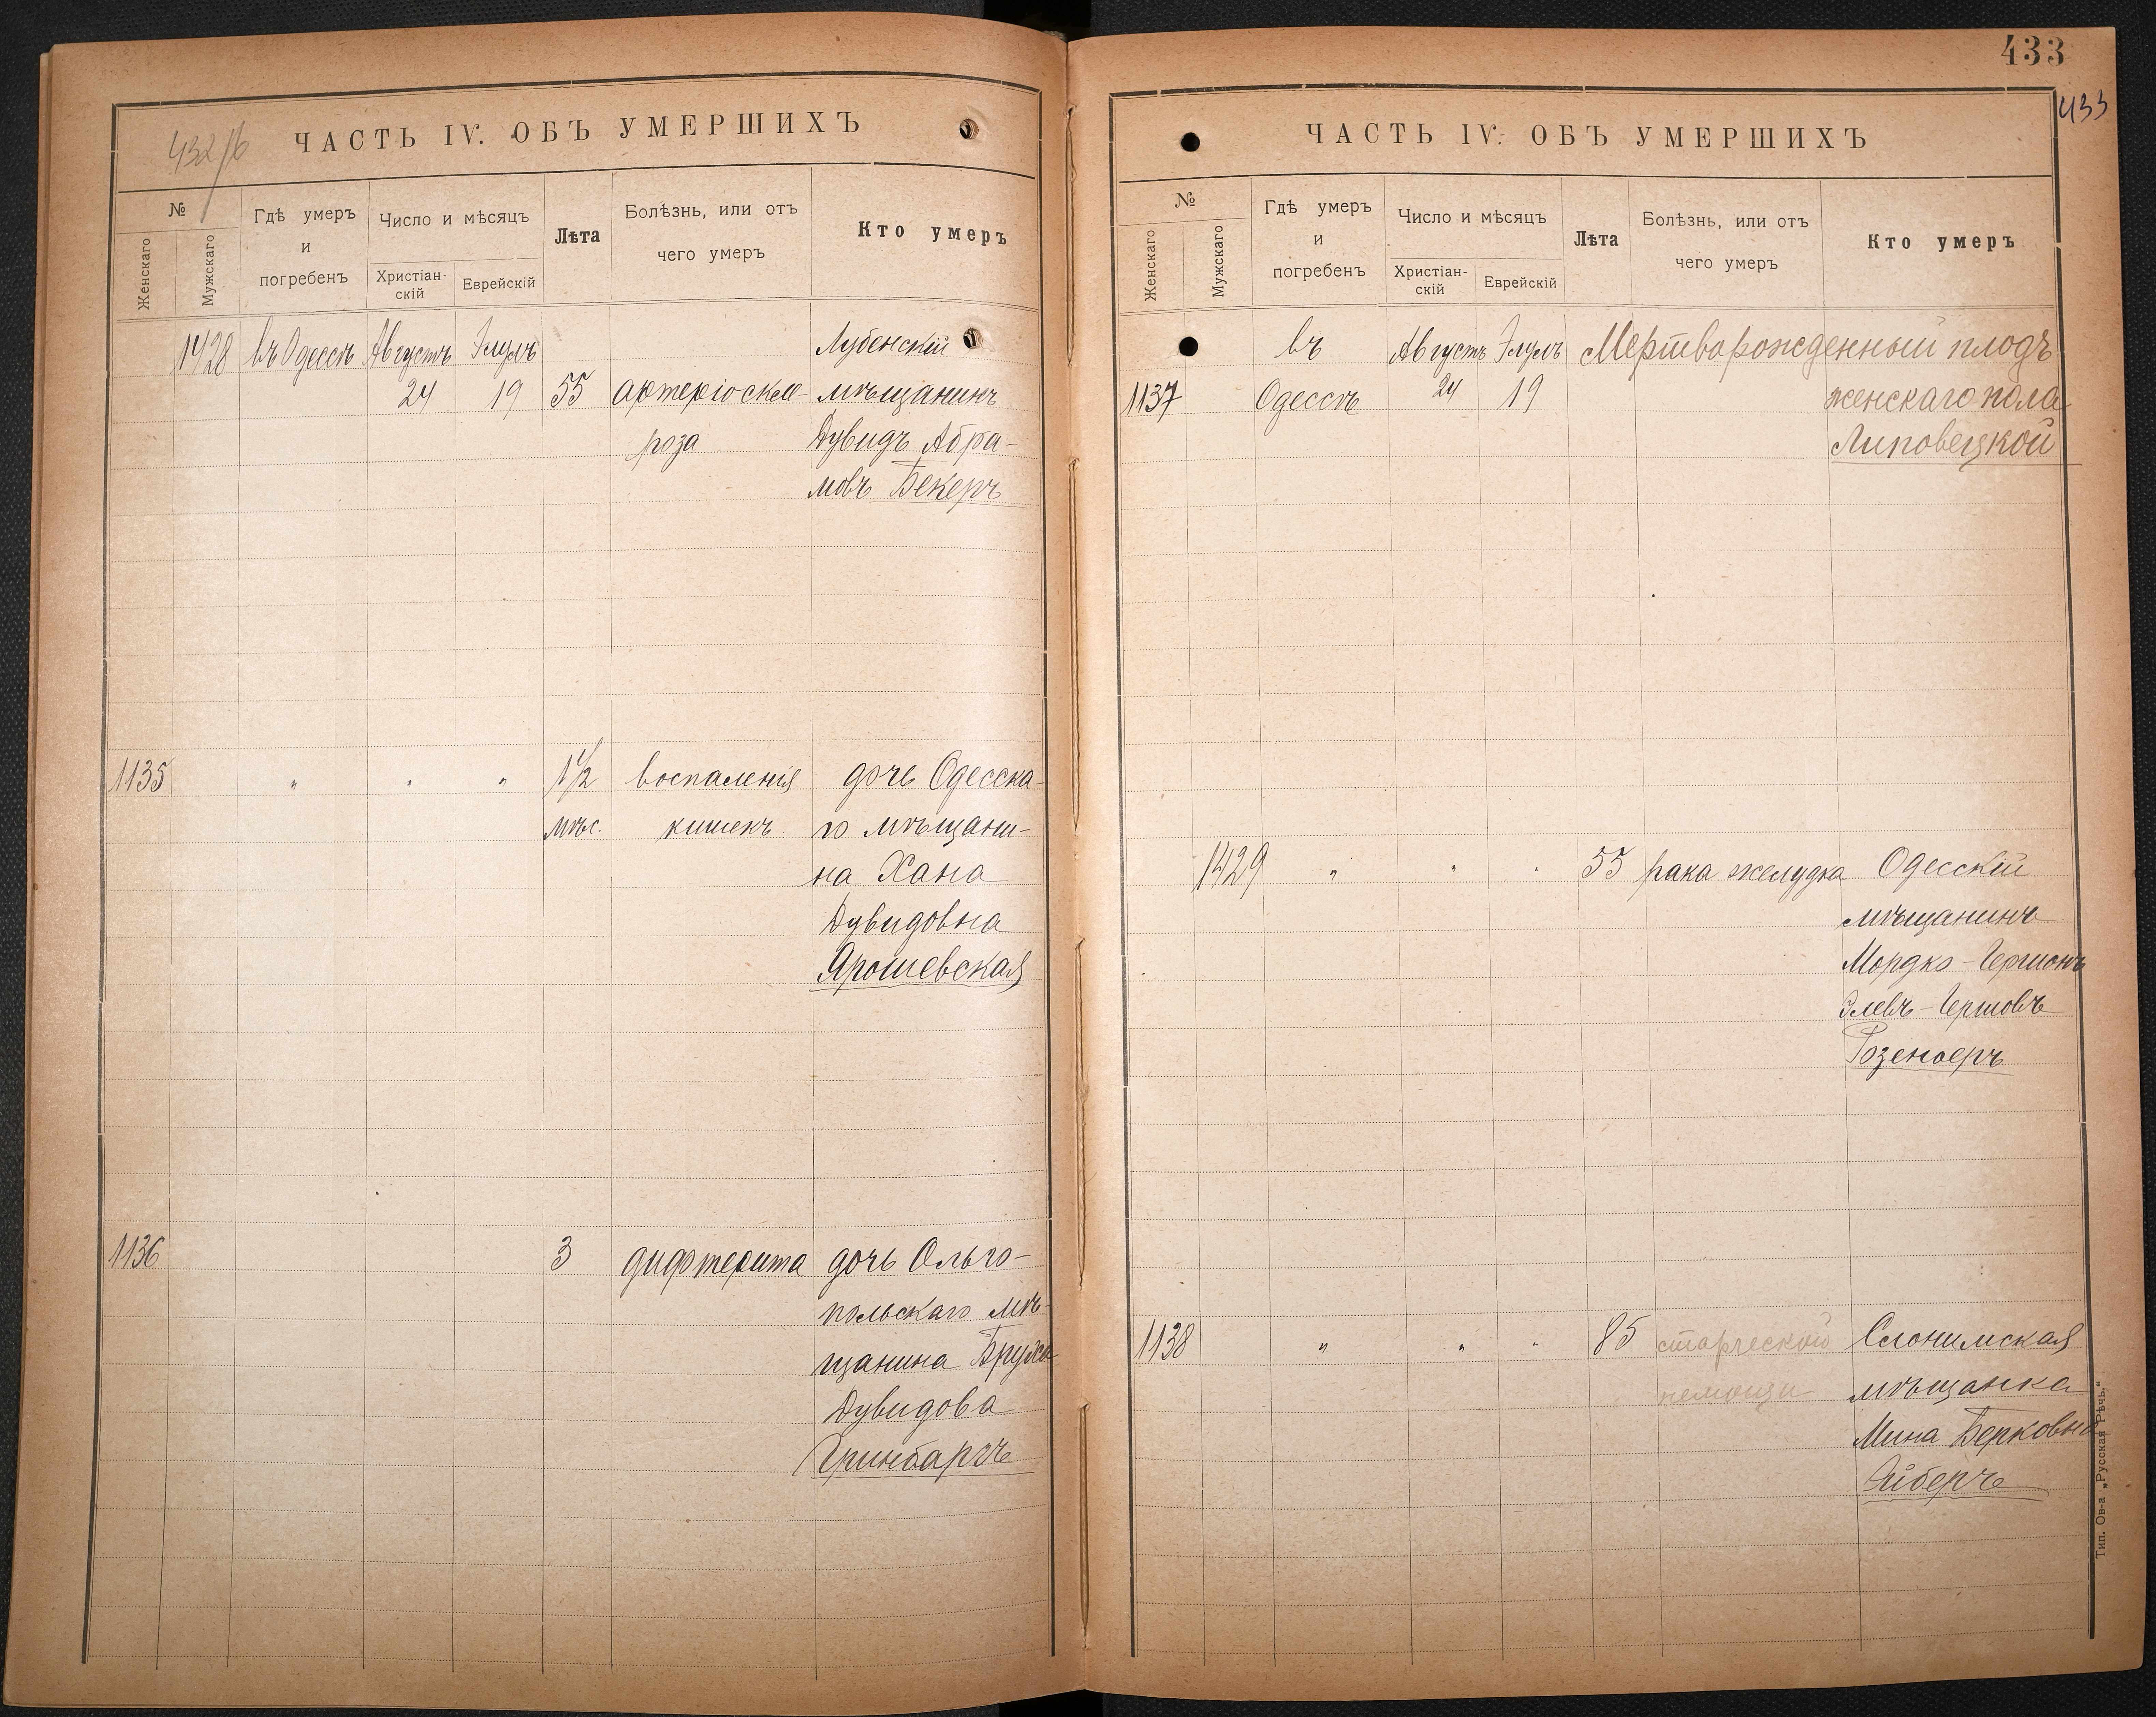 432/б
ЧАСТЬ IV. ОБЪ УМЕРШИХЪ
№
Женскаго
Мужскаго
Гдѣ умеръ
и
погребенъ
Число и мѣсяцъ
Христіан-
скій
Еврейскій
Лѣта
Болѣзнь, или отъ
чего умеръ
Кто умеръ
1428 въ Одессѣ Августъ Элулъ Лубенскій
24 19 55 артеріоскле- мѣщанинъ
роза Дувидъ Абра-
мовъ Бекеръ
1135 " " " 1 1/2 воспаленія дочь Одесска-
мѣс. кишекъ го мѣщани-
на Хана
Дувидовна
Ярошевская
1136 3 дифтерита дочь Ольго-
польскаго мѣ-
щанина
Дувидова
Гринбаргъ
433
433
ЧАСТЬ IV. ОБЪ УМЕРШИХЪ
№
Женскаго
Мужскаго
Гдѣ умеръ
и
погребенъ
Число и мѣсяцъ
Христіан-
скій
Еврейскій
Лѣта
Болѣзнь, или отъ
чего умеръ
Кто умеръ
въ Августъ Элулъ Мертворожденный плодъ
1137 Одессѣ 24 19 женскаго пола
Липовецкой
1429 " " " 55 рака желудка Одесскій
мѣщанинъ
Мордко-Гершонъ
Элевъ-Гершовъ
1138 " " " 85 старческой Слонимская
немощи мѣщанка
Мина Берковна
Айберъ
Тип. Ов-а „Русская Рѣчь."